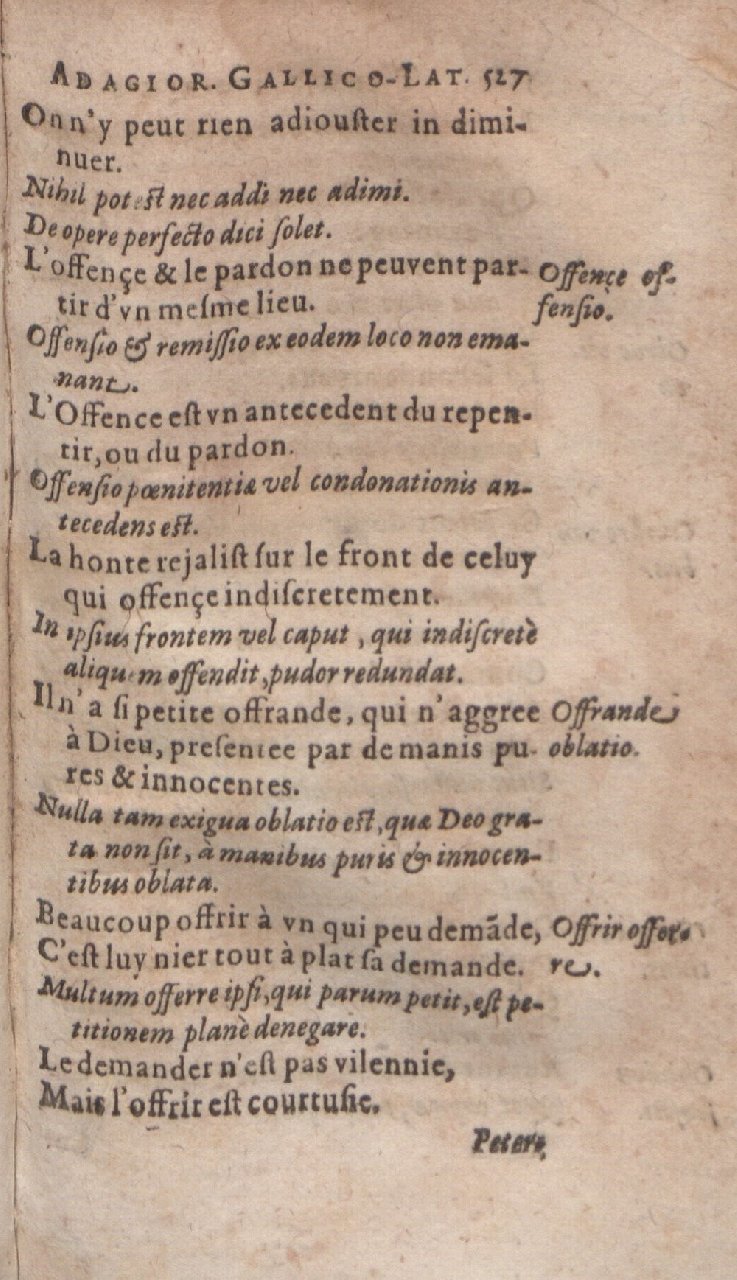 ADAGIOR. GALLICO-LAT. 527
On n'y peut rien adiouſter in dimi-
nuer.
Nihil poteſt nec addi nec adimi.
De opere perfecto dici ſolet.
L'offençe & le pardon ne peuvent par-
tir d'vn meſme lieu.
Offençe of-
fenſio.
Offenſio & remiſſio ex eodem loco non ema-
nant.
L'Offence eſt vn antecedent du repen-
tir, ou du pardon.
Offenſio pœnitentiæ vel condonationis an-
tecedens eſt.
La honte rejaliſt ſur le front de celuy
qui offençe indiſcretement.
In ipſius frontem vel caput, qui indiſcretè
aliquem offendit, pudor redundat.
Il n'a ſi petite offrande, qui n'aggree
à Dieu, preſentee par de manis pu-
res & innocentes.
Offrande
oblatio.
Nulla tam exigua oblatio eſt, quæ Deo gra-
ta non ſit, à manibus puris & innocen-
tibus oblata.
Beaucoup offrir à vn qui peu demãde,
C'eſt luy nier tout à plat ſa demande.
Offrir offer-
re.
Multum offerre ipſi, qui parum petit, eſt pe-
titionem planè denegare.
Le demander n'eſt pas vilennie,
Mais l'offrir eſt courtuſie.
Petere